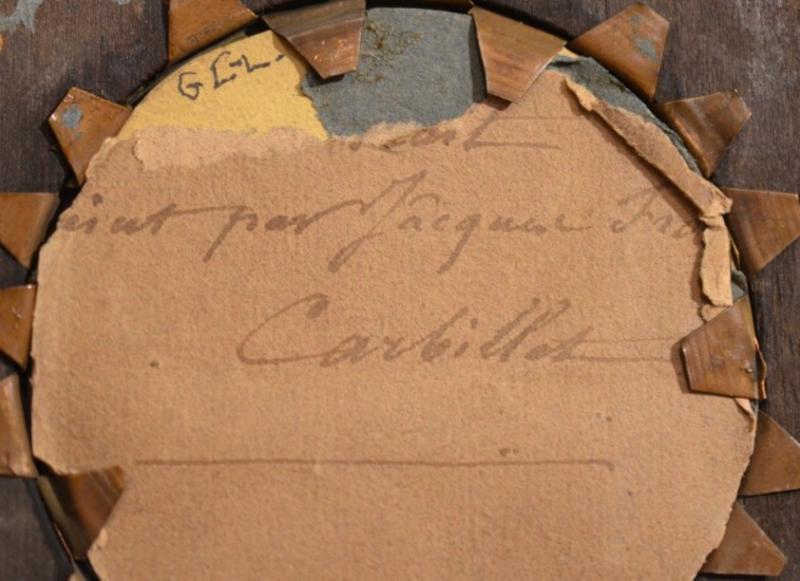 GLL.
eint par Jacques Fro
Carbillet